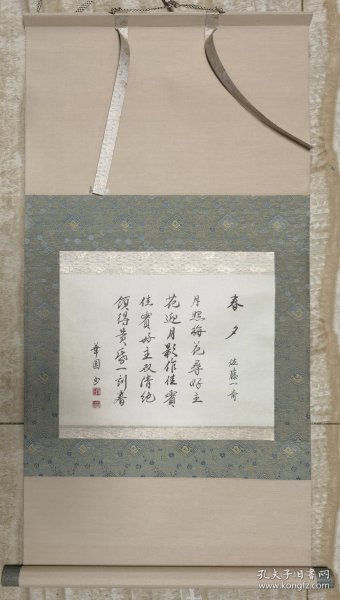 春夕
佐藤一斎
月照梅花尋好主
花迎月影作佳賓
佳賓好主双清絶
領得黄昏一刻春
華国书
孔夫子旧书网
www.kongfz.com